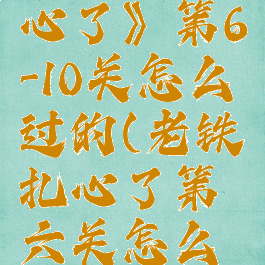 心了》第6
-10关怎么
过的(老铁
扎心了第
六关怎么